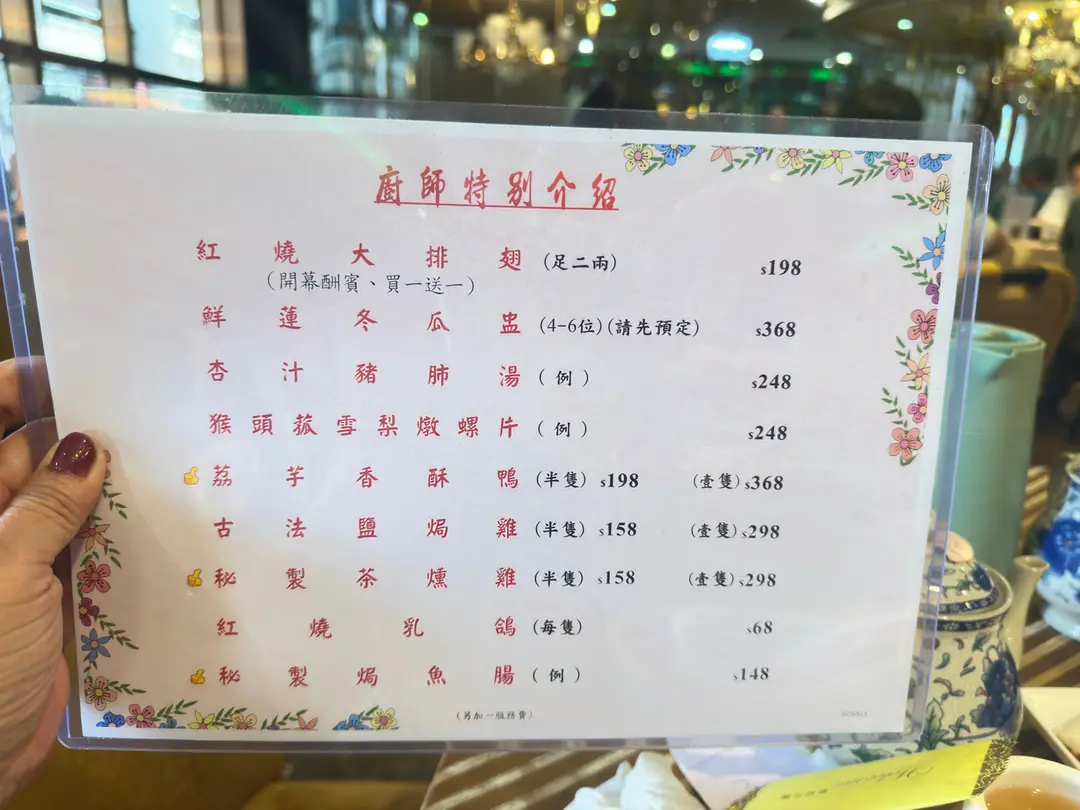 廚師特別介紹
紅燒大排翅(足二兩) $198
(開幕酬賓、買一送一)
鮮蓮冬瓜盅(4-6位)(請先預定) $368
杏汁豬肺湯(例) $248
猴頭菰雪梨燉螺片(例) $248
荔芋香酥鴨(半隻) $198 (壹隻) $368
古法鹽焗雞(半隻) $158 (壹隻) $298
秘製茶燻雞(半隻) $158 (壹隻) $298
紅燒乳鴿(每隻) $68
秘製焗魚腸(例) $148
(另加一服務費)